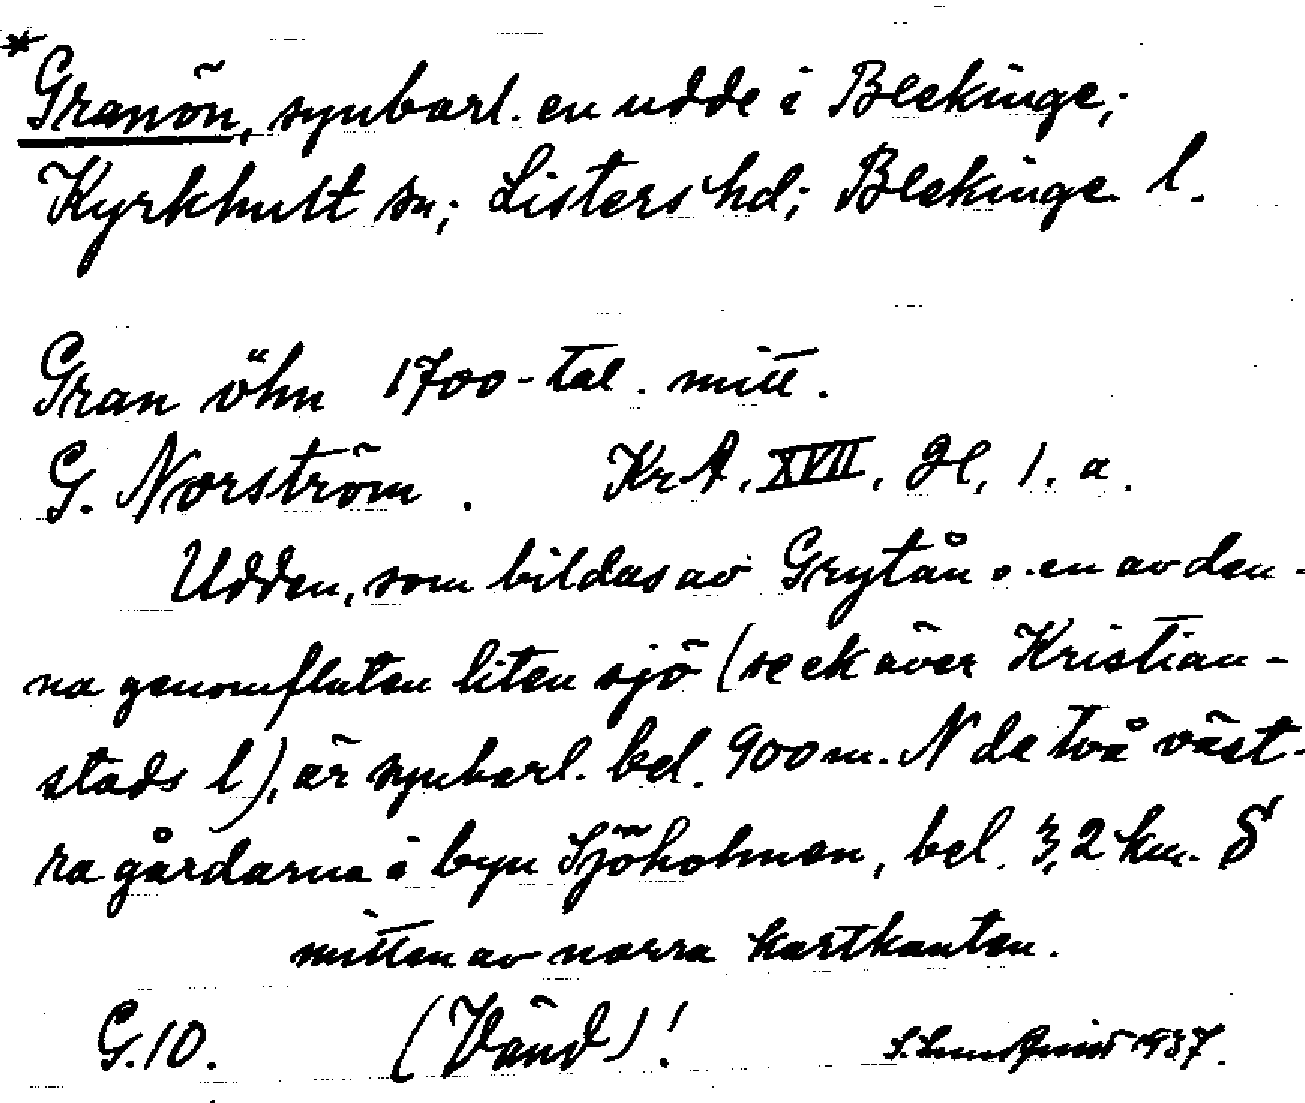 *Granön, synbarl. en udde i Blekinge;
Kyrkhult sn; Listers hd; Blekinge l.
Gran öhn 1700-tal. mitt.
G. Norström. KrA. XVII, H, 1. a.
Udden, som bildas av Grytån o. en av den-
na genomfluten liten sjö (se ek över Kristian-
stads l), är synbarl. bel. 900 m. N de två väst-
ra gårdarna i byn Sjöholmen, bel. 3,2 km. S
mitten av norra kartkanten.
G.10. (Vänd)! 1937.